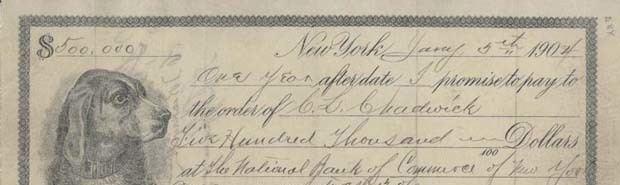 $500,000 New York Jany 5th 1904
One year after date I promise to pay to
the order of C. L. Chadwick
Five Hundred Thousand Dollars
at The National Bank of Commerce of New Yor
100